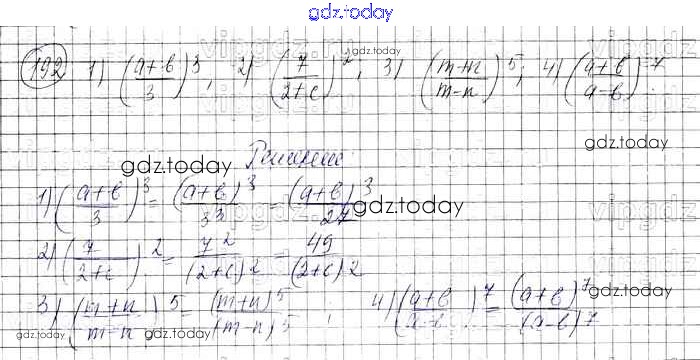 gdz.today
192 1) ((a+b)/3)^3; 2) (7/(2+c))^2; 3) ((m+n)/(m-n))^5; 4) ((a+b)/(a-b))^7
gdz.today
gdz.today
Решение
gdz.today
1) ((a+b)/3)^3 = (a+b)^3/3^3 = (a+b)^3/27
gdz.today
2) (7/(2+c))^2 = 7^2/(2+c)^2 = 49/(2+c)^2
3) ((m+n)/(m-n))^5 = (m+n)^5/(m-n)^5; 4) ((a+b)/(a-b))^7 = (a+b)^7/(a-b)^7
gdz.today
gdz.today
gdz.today